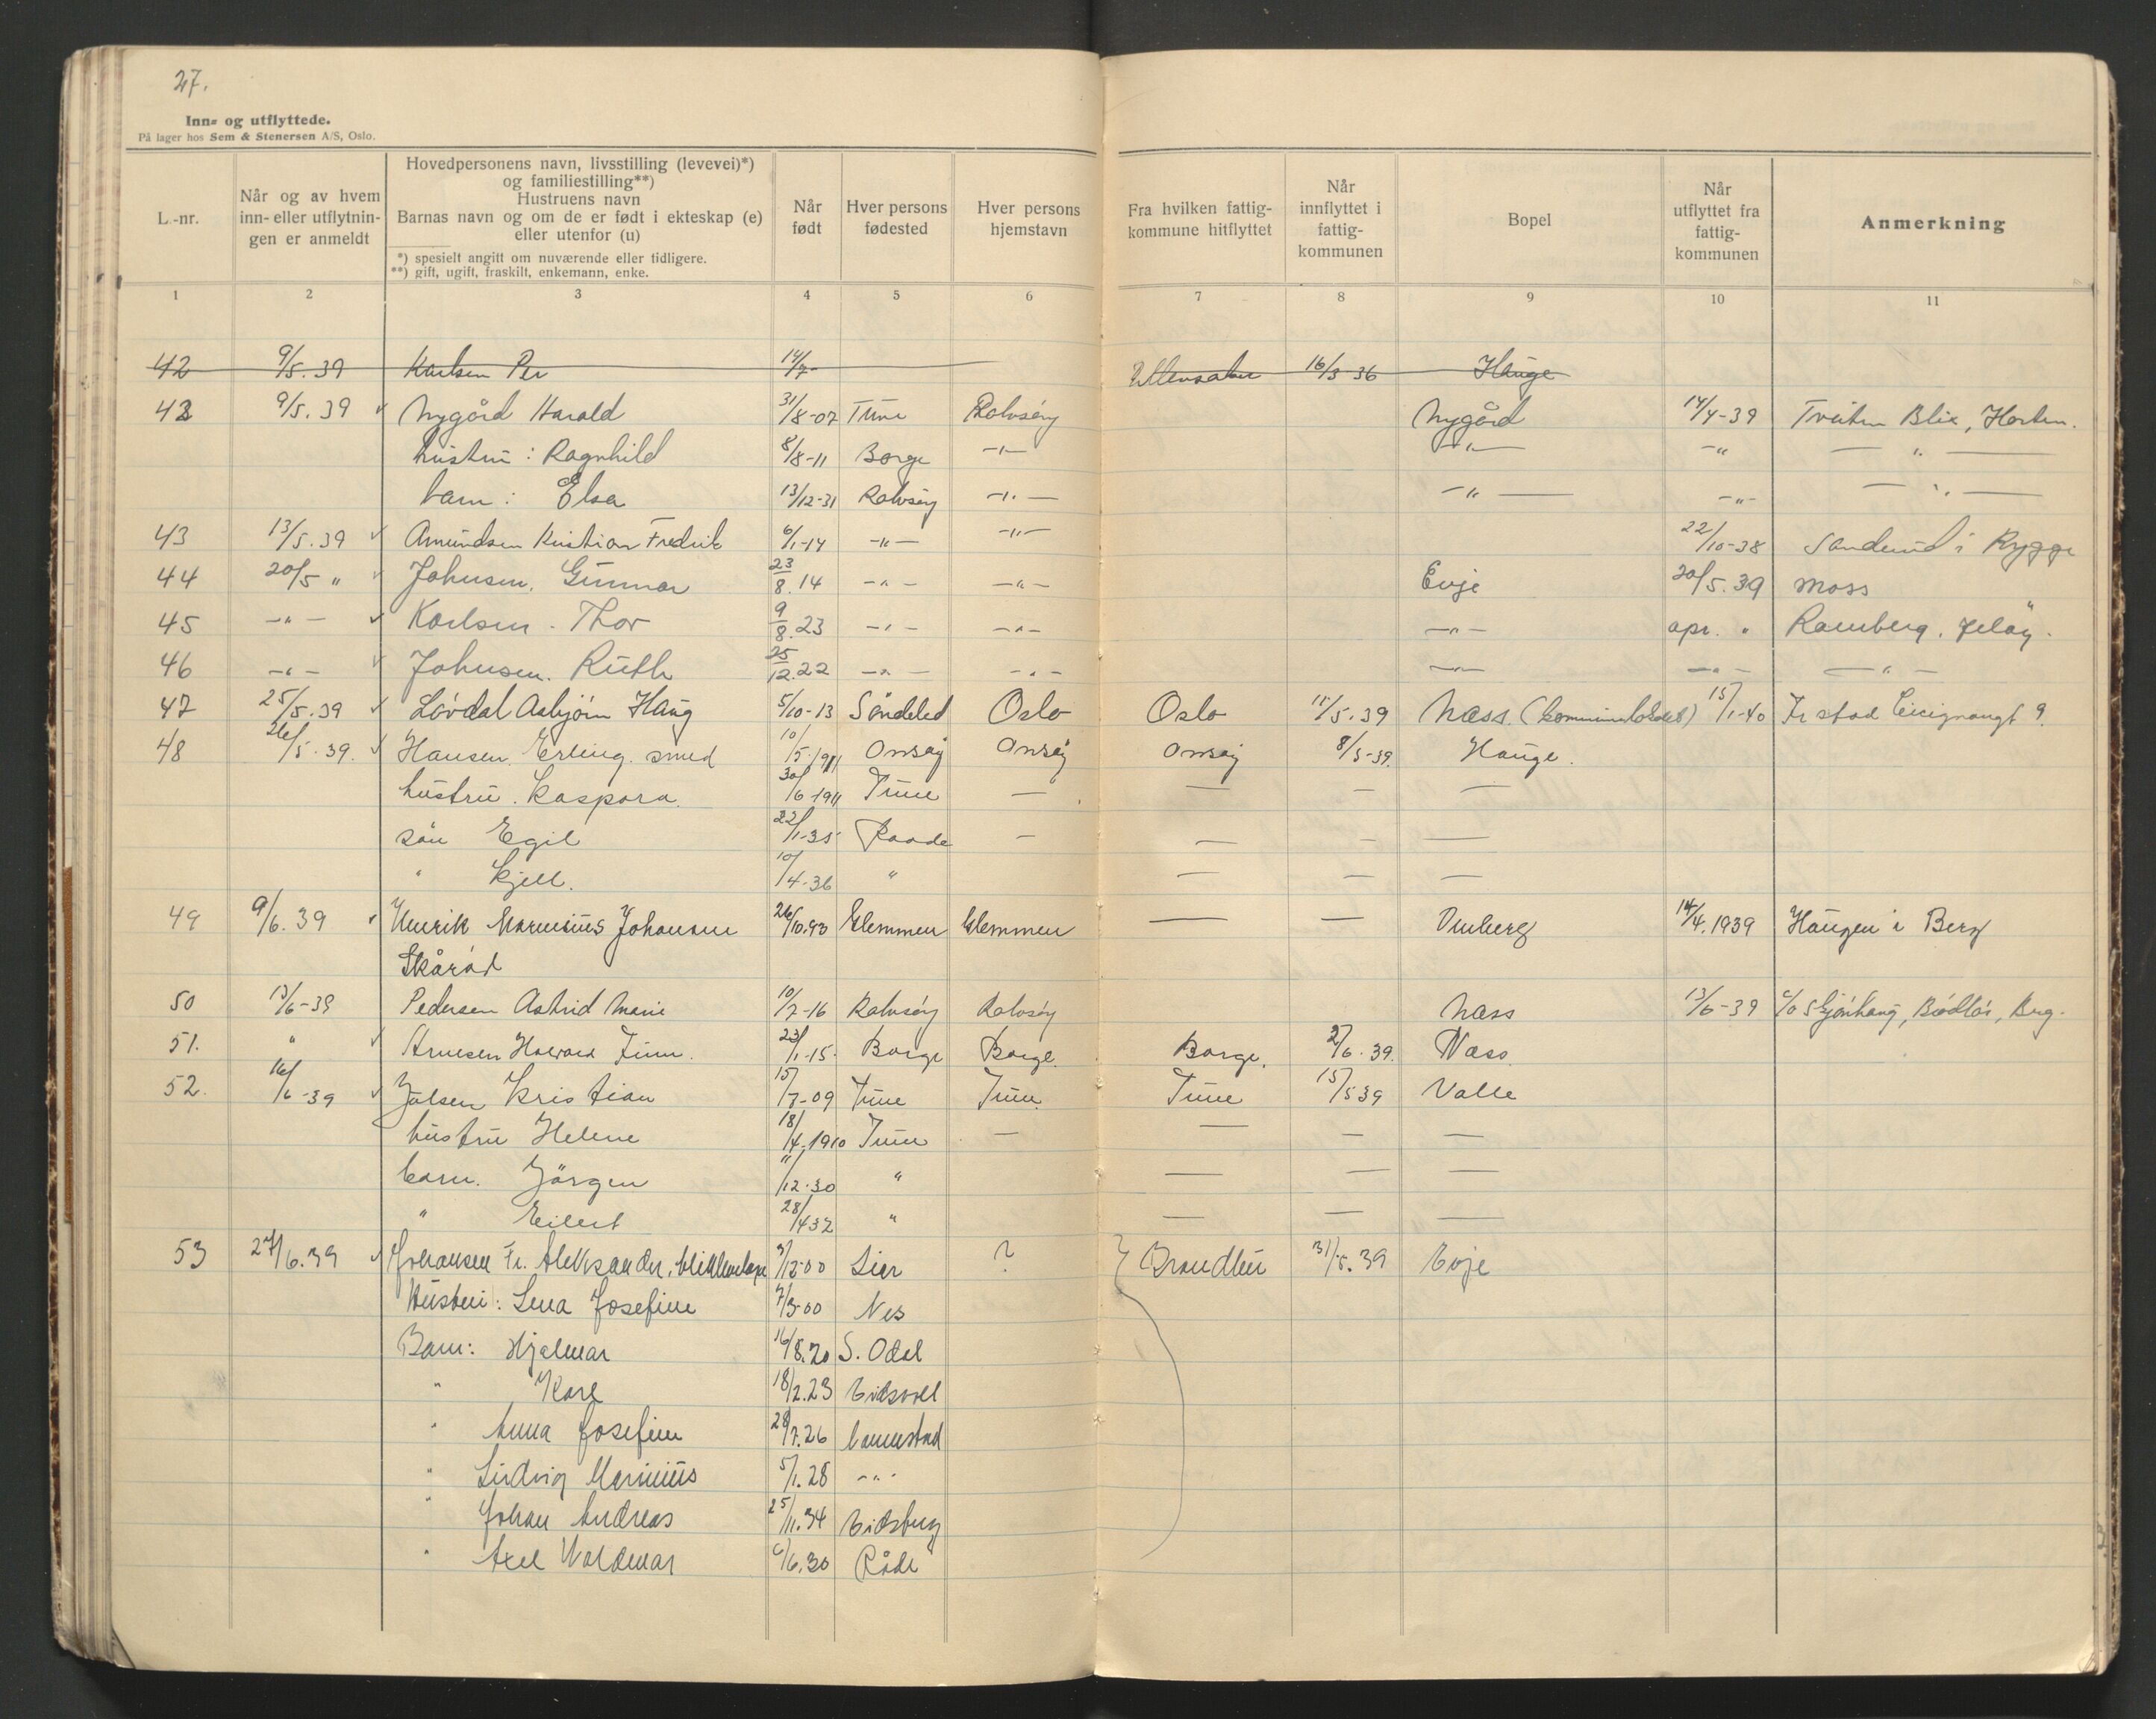 27.
Inn- og utflyttede.
På lager hos Sem & Stenersen A/S, Oslo.
L.-nr.
Når og av hvem inn- eller utflytnin-gen er anmeldt
Hovedpersonens navn, livsstilling (levevei)*) og familiestilling**)
Hustruens navn
Barnas navn og om de er født i ekteskap (e) eller utenfor (u)
*) spesielt angitt om nuværende eller tidligere.
**) gift, ugift, fraskilt, enkemann, enke.
Når født
Hver persons fødested
Hver persons hjemstavn
Fra hvilken fattig-kommune hitflyttet
Når innflyttet i fattig-kommunen
Bopel
Når utflyttet fra fattig-kommunen
Anmerkning
1 2 3 4 5 6 7 8 9 10 11
42 9/5.39 Karlsen Per 14/7- 16/3 36 Hauge
42 9/5.39 Nygård Harald 31/8-07 Tune Rolvsøy Nygård 14/4-39 Tveiten Blix, Horten.
hustru: Ragnhild 8/8-11 Borge -"- -"- -" -"-
barn: Elsa 13/12-31 Rolvsøy -"- -"- -"- -"-
43 13/5.39 Amundsen Kristian Fredrik 6/1-14 -"- -"- 22/10-38 i Rygge
44 20/5 " Johnsen. Gunnar 23/8.14 -"- -"- Evje 20/5.39 Moss
45 -"- Karlsen. Thor 9/8.23 -"- -"- -"- apr. " Ramberg. Jeløy.
46 -"- Johnsen. Ruth 25/12.22 -"- -"- -"- -"- -"-
47 25/5.39 Løvdal Asbjørn Haug 5/10-13 Søndeled Oslo Oslo 11/5.39 Næss. 15/1-40 Fr.stad
48 26/5.39. Hansen. Erling. smed 10/5.1911 Onsøy Onsøy Onsøy 8/5-39. Hauge.
hustru. Kaspara. 30/6-1911 Tune — — — —
søn Egil 22/1-35 Raade — — — —
" Kjell. 10/4-36 " — — —
49 9/6.39 Henrik Marensius Johansen 26/10.93 Glemmen Glemmen — — Omberg 14/4.1939 Haugen i Berg
Skårød
50 13/6-39 Pedersen Astrid Marie 10/7-16 Rolvsøy Rolvsøy Næss 13/6-39 c/o
51. " Arnesen Finn. 23/1-15. Borge Borge. Borge. 2/6.39. Næss
52. 16/6-39 Julsen Kristian 15/7-09 Tune Tune Tune 15/5 39 Valle
hustru Helene 18/4.1910 Tune — — — —
barn. Jørgen 11/12-30 " — — —
" Eilert 28/4 32 " — — —
53 27/6.39 Johansen Fr. Aleksander, 3/12-00 Lier ? } 31/5.39 Evje
Hustru: Lena Josefine 7/3-00 Nes
Barn: Hjalmar 16/8.20 S. Odal
" Karl 18/2.23 Eidsvoll
" Anna Josefine 28/7.26
" Ludvig Marinius 5/1.28 -"-
" Johan Andreas 25/11.34 Eidsberg
" Axel Valdemar 6/6.30 Råde